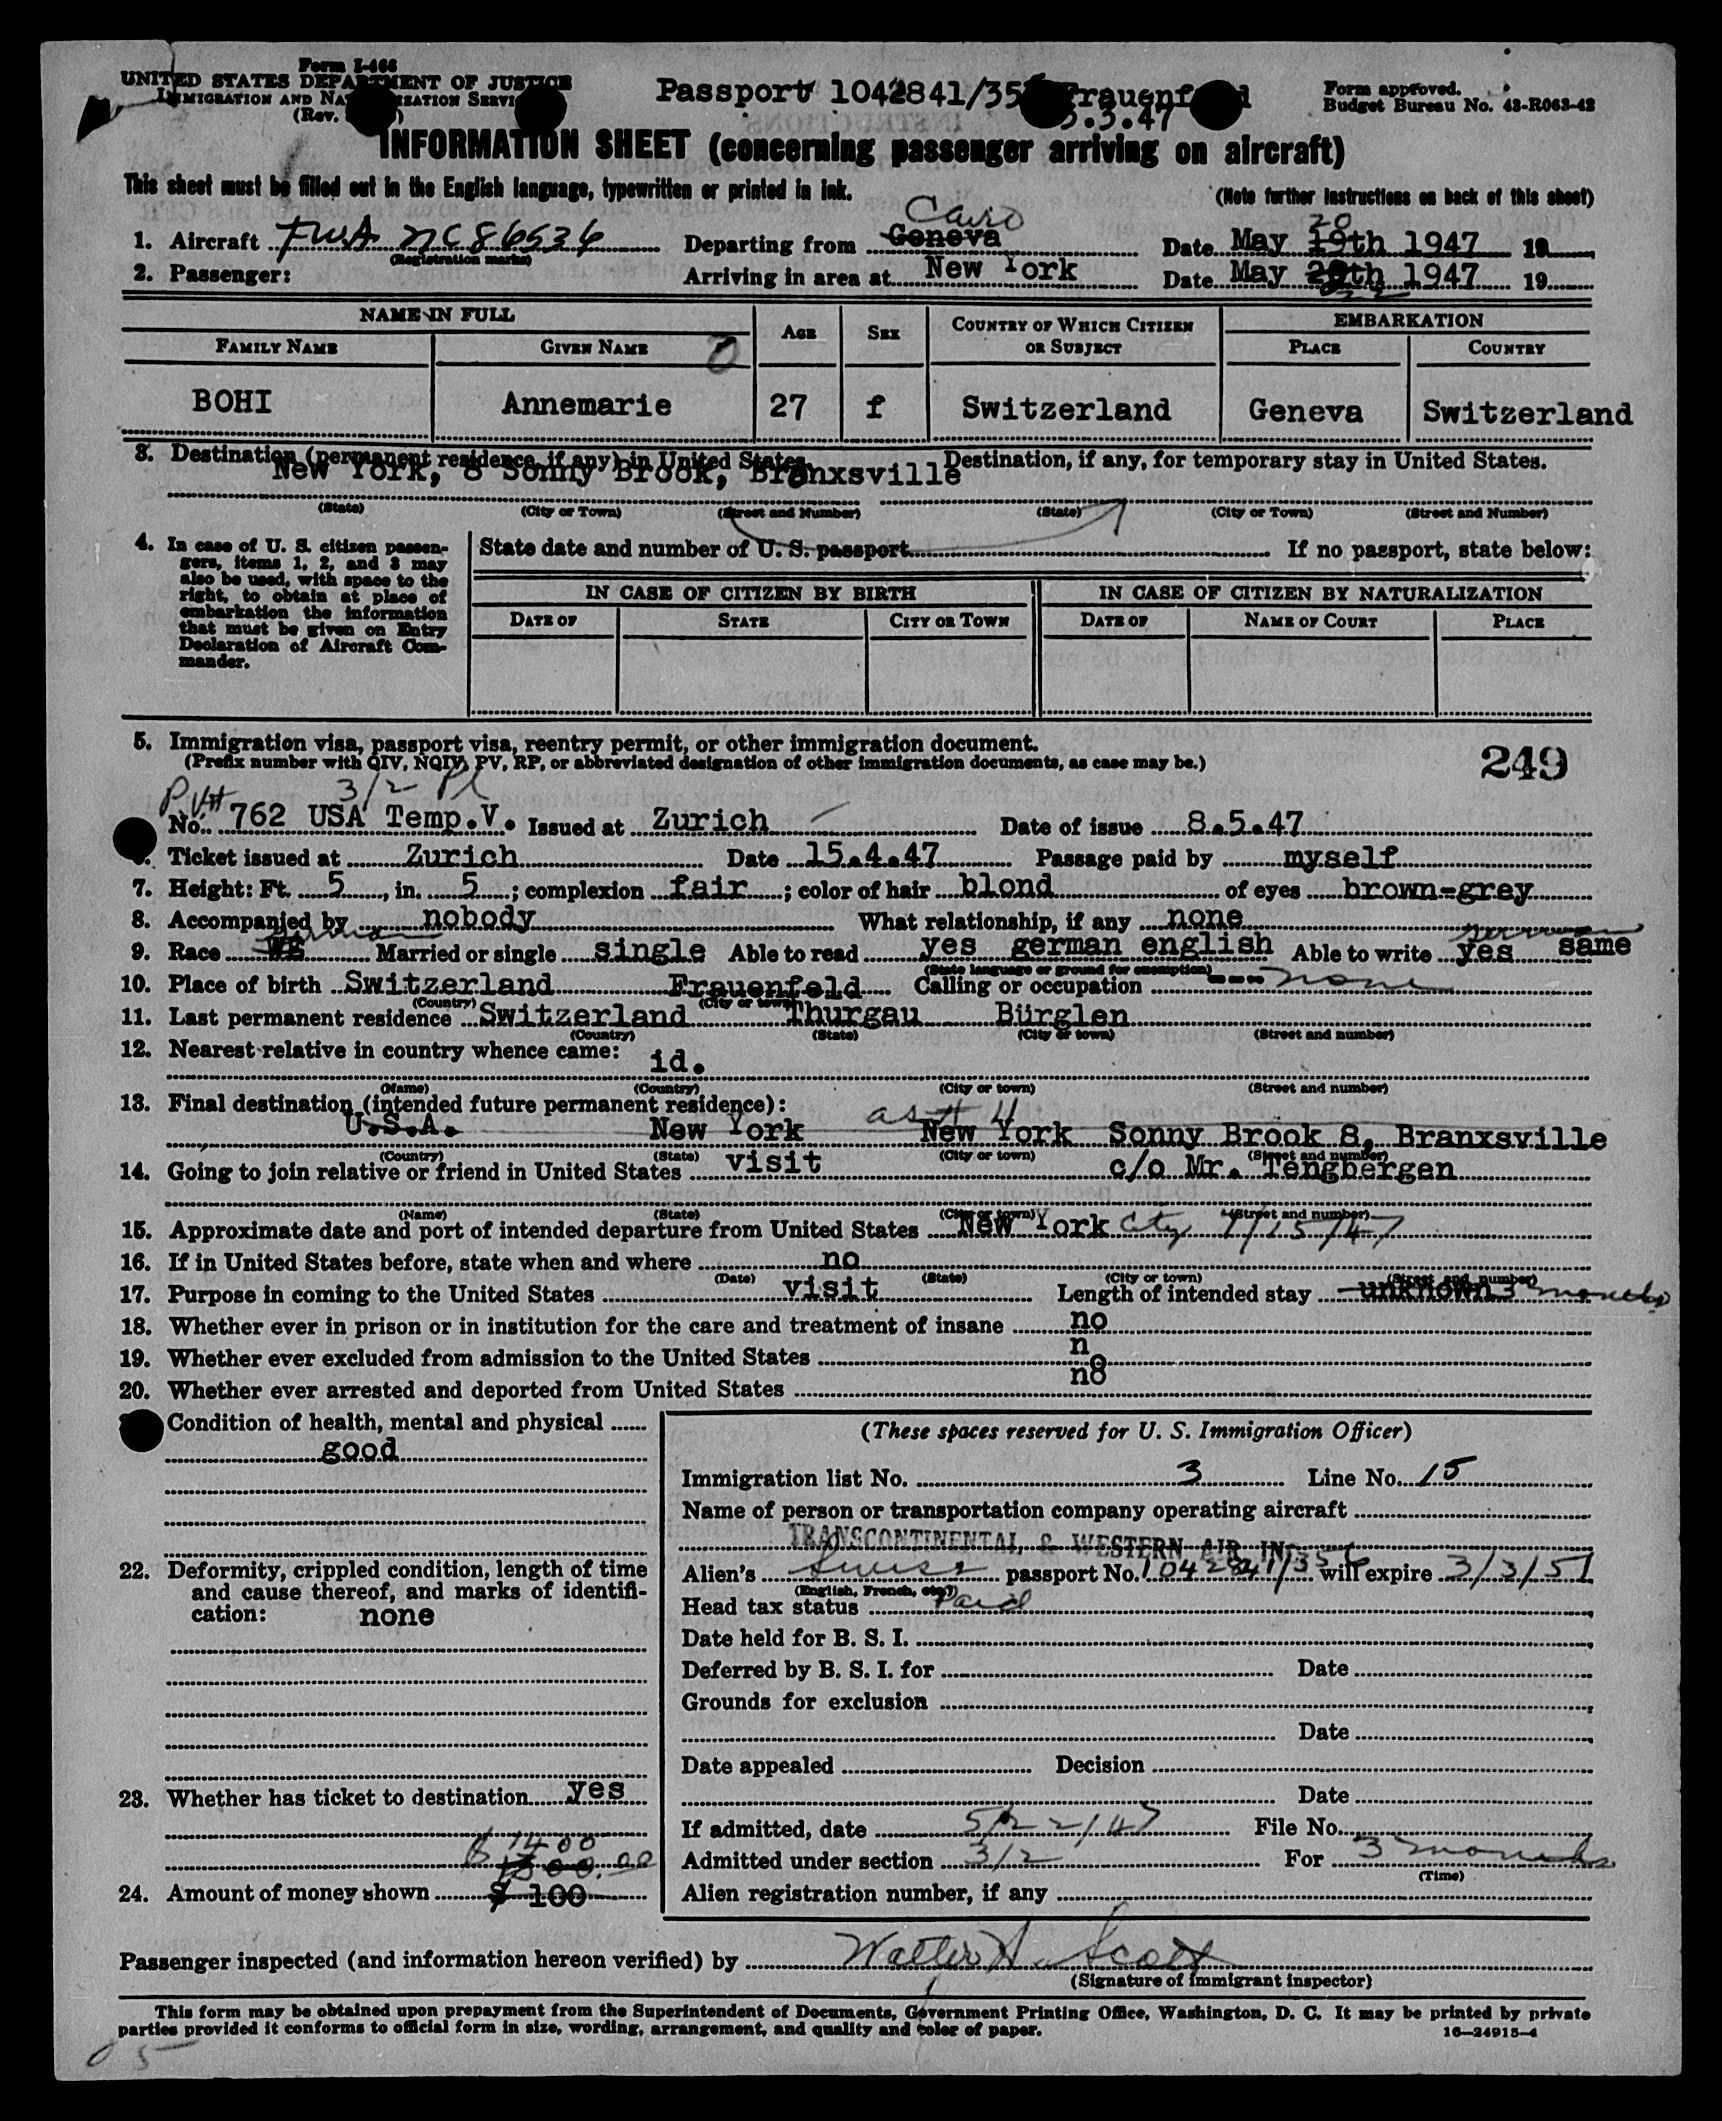 Form I-466
UNITED STATES DEPARTMENT OF JUSTICE
IMMIGRATION AND NATURALIZATION SERVICE
(Rev.
Passport 1042841/35 Frauenfeld
3.3.47
Form approved.
Budget Bureau No. 43-R063-42
INFORMATION SHEET (concerning passenger arriving on aircraft)
This sheet must be filled out in the English language, typewritten or printed in ink. (Note further instructions on back of this sheet)
Cairo 20
1. Aircraft TWA NC86536 Departing from Geneva Date May 19th 1947 19
(Registration marks)
2. Passenger: Arriving in area at New York Date May 20th 1947 19
22
NAME IN FULL AGE SEX COUNTRY OF WHICH CITIZEN OR SUBJECT EMBARKATION
FAMILY NAME GIVEN NAME PLACE COUNTRY
BOHI Annemarie 27 f Switzerland Geneva Switzerland
3. Destination (permanent residence, if any) in United States. Destination, if any, for temporary stay in United States.
New York, 8 Sonny Brook, Branxsville
(State) (City or Town) (Street and Number) (State) (City or Town) (Street and Number)
4. In case of U. S. citizen passengers, items 1, 2, and 3 may also be used, with space to the right, to obtain at place of embarkation the information that must be given on Entry Declaration of Aircraft Commander.
State date and number of U. S. passport If no passport, state below:
IN CASE OF CITIZEN BY BIRTH IN CASE OF CITIZEN BY NATURALIZATION
DATE OF STATE CITY OR TOWN DATE OF NAME OF COURT PLACE
5. Immigration visa, passport visa, reentry permit, or other immigration document.
(Prefix number with QIV, NQIV, PV, RP, or abbreviated designation of other immigration documents, as case may be.)
249
PV# 3/2 Pl
No. 762 USA Temp.V. Issued at Zurich Date of issue 8.5.47
Ticket issued at Zurich Date 15.4.47 Passage paid by myself
7. Height: Ft. 5, in. 5; complexion fair; color of hair blond of eyes brown-grey
8. Accompanied by nobody What relationship, if any none
German German
9. Race Married or single single Able to read yes german english Able to write yes same
(State language or ground for exemption)
10. Place of birth Switzerland Frauenfeld Calling or occupation --- none
(Country) (City or town)
11. Last permanent residence Switzerland Thurgau Bürglen
(Country) (State) (City or town) (Street and number)
12. Nearest relative in country whence came: id.
(Name) (Country) (City or town) (Street and number)
13. Final destination (intended future permanent residence):
as # 4
U.S.A. New York New York Sonny Brook 8, Branxsville
(Country) (State) (City or town) (Street and number)
14. Going to join relative or friend in United States visit c/o Mr. Tengbergen
(Name) (State) (City or town) (Street and number)
15. Approximate date and port of intended departure from United States New York City /15/47
16. If in United States before, state when and where no
(Date) (State) (City or town) (Street and number)
17. Purpose in coming to the United States visit Length of intended stay unknown 3 months
18. Whether ever in prison or in institution for the care and treatment of insane no
19. Whether ever excluded from admission to the United States n
20. Whether ever arrested and deported from United States no
Condition of health, mental and physical
good
22. Deformity, crippled condition, length of time and cause thereof, and marks of identification: none
23. Whether has ticket to destination yes
1400
24. Amount of money shown $ 100
(These spaces reserved for U. S. Immigration Officer)
Immigration list No. 3 Line No. 15
Name of person or transportation company operating aircraft
TRANSCONTINENTAL & WESTERN AIR, IN
Alien's Swiss passport No. 1042841/356 will expire 3/3/51
(English, French, etc.)
Head tax status Paid
Date held for B. S. I.
Deferred by B. S. I. for Date
Grounds for exclusion
Date
Date appealed Decision
Date
If admitted, date 5/22/47 File No.
Admitted under section 3/2 For 3 months
(Time)
Alien registration number, if any
Passenger inspected (and information hereon verified) by Walter A. Scott
(Signature of immigrant inspector)
This form may be obtained upon prepayment from the Superintendent of Documents, Government Printing Office, Washington, D. C. It may be printed by private
parties provided it conforms to official form in size, wording, arrangement, and quality and color of paper.
16—24915-4